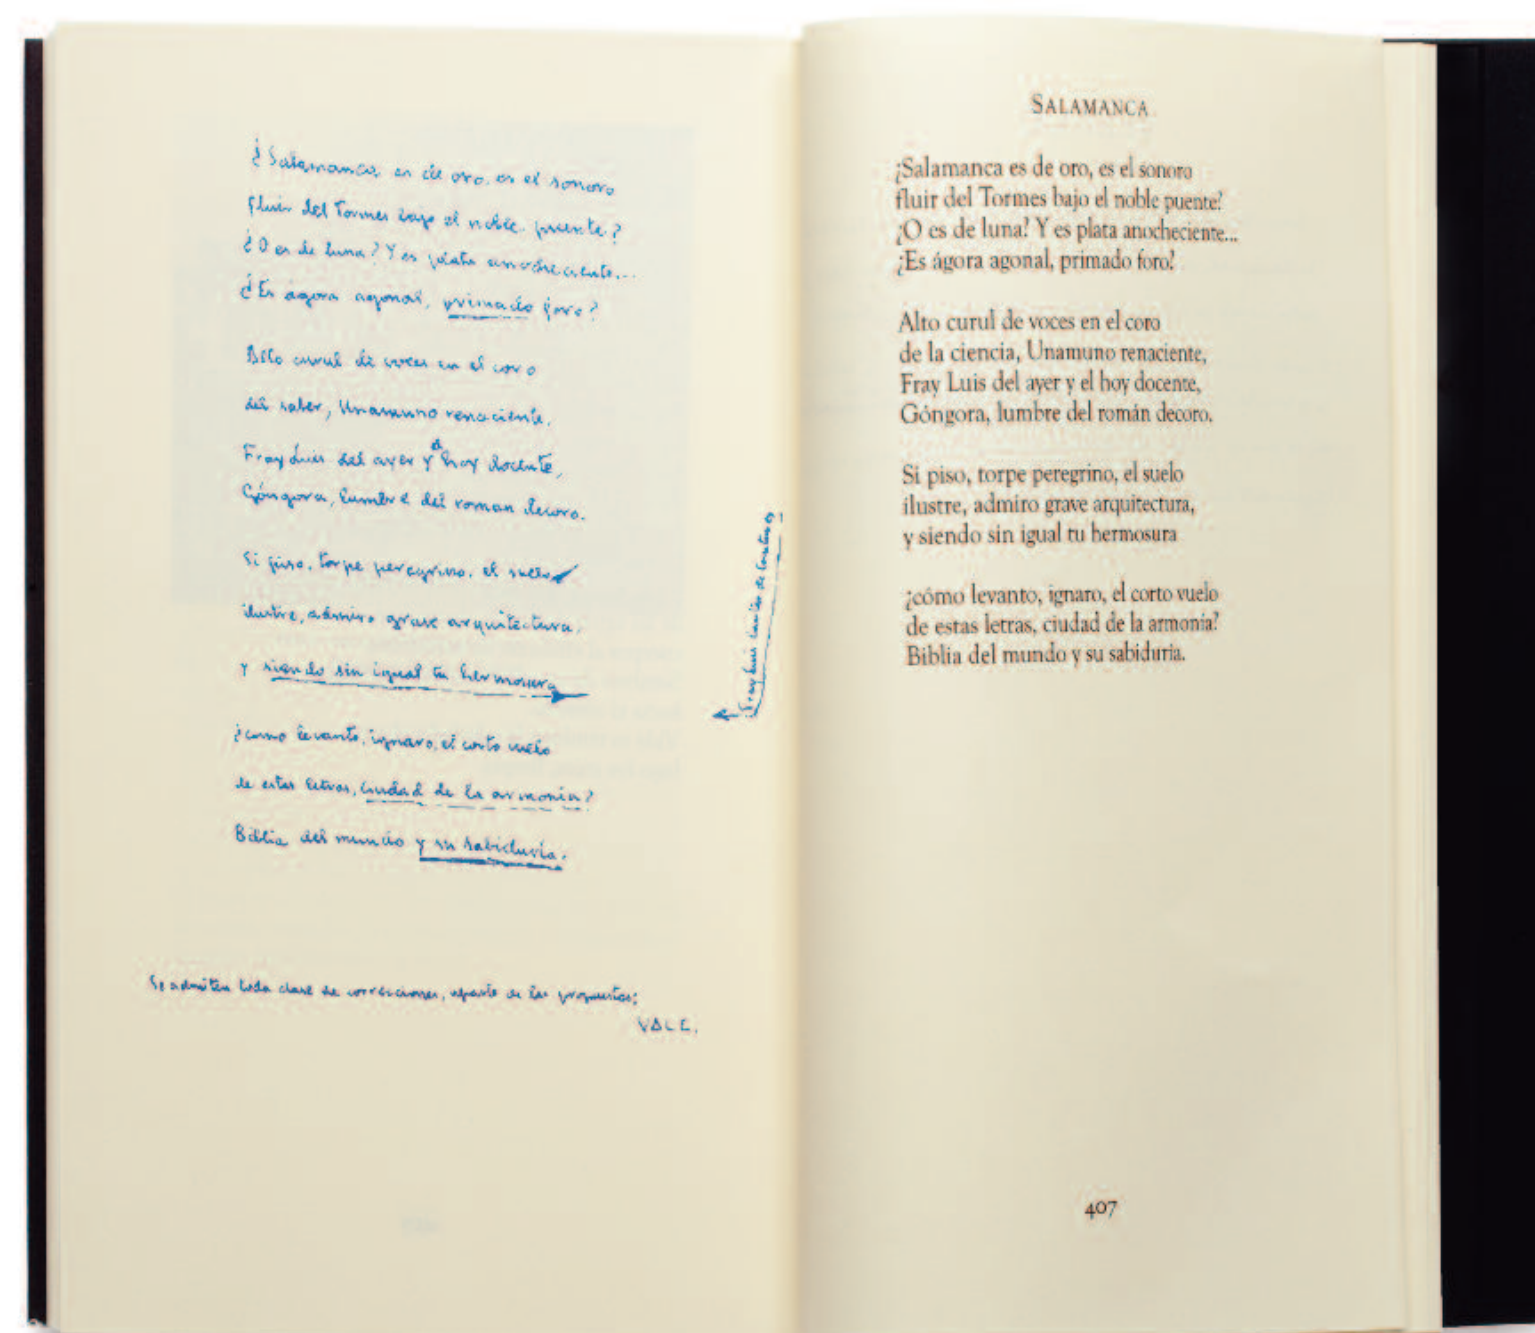 ¿Salamanca es de oro, es el sonoro
fluir del Tormes bajo el noble puente?
¿O es de luna? Y es plata anocheciente...
¿Es ágora agonal, primado foro?
Alto curul de voces en el coro
del saber, Unamuno renaciente,
Fray Luis del ayer y el hoy docente,
Góngora, lumbre del roman decoro.
Si piso, torpe peregrino, el suelo
ilustre, admiro grave arquitectura,
y siendo sin igual tu hermosura
¿como levanto, ignaro, el corto vuelo
de estas letras, ciudad de la armonía?
Biblia del mundo y su sabiduría.
Fray Luis
Se admiten toda clase de correcciones, aparte de las propuestas;
VALE.
SALAMANCA
¿Salamanca es de oro, es el sonoro
fluir del Tormes bajo el noble puente?
¿O es de luna? Y es plata anocheciente...
¿Es ágora agonal, primado foro?
Alto curul de voces en el coro
de la ciencia, Unamuno renaciente,
Fray Luis del ayer y el hoy docente,
Góngora, lumbre del román decoro.
Si piso, torpe peregrino, el suelo
ilustre, admiro grave arquitectura,
y siendo sin igual tu hermosura
¿cómo levanto, ignaro, el corto vuelo
de estas letras, ciudad de la armonía?
Biblia del mundo y su sabiduría.
407